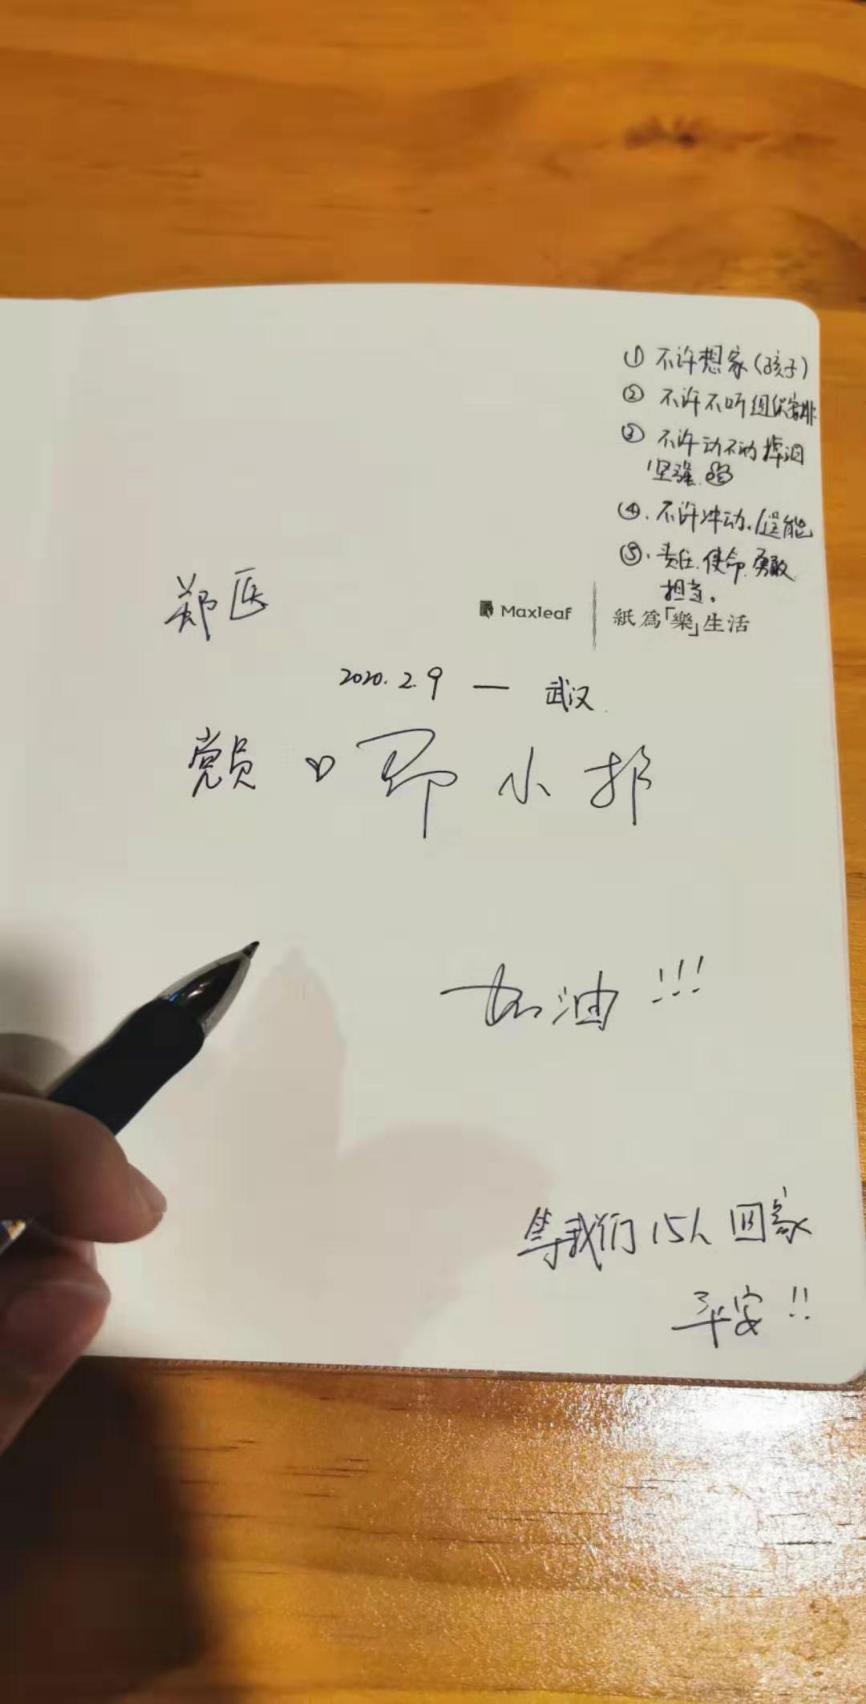 ① 不许想家(孩子)
② 不许不听组织安排
③ 不许动不动掉泪
坚强.
④.不许冲动.逞能
⑤.责任.使命.勇敢
担当。
郑医
Maxleaf 紙為「樂」生活
2020.2.9 — 武汉
党员 小
加油!!!
等我们15人回家
平安!!